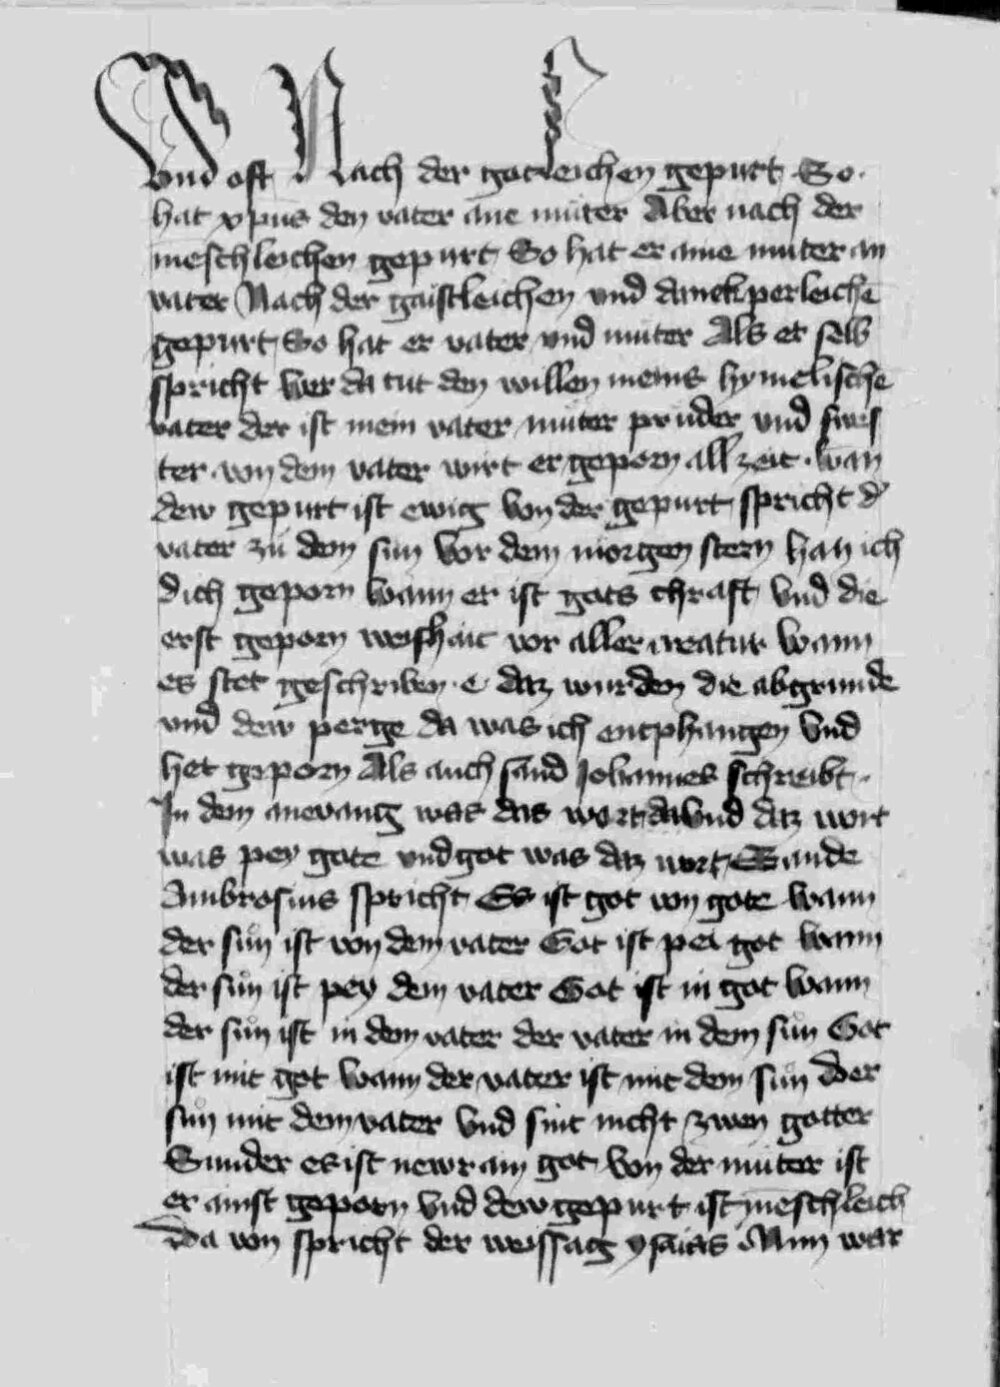 vnd oft Nach der gotleichen gepurt So
hat xp̄us den vater ane muter Aber nach der
mēschleichen gepurt So hat er aine muter an
vater Nach der gaistleichen vnd danckperleichē
gepurt So hat er vater vnd muter Als er selb
spricht wer da tut den willen meins hymelischē
vater der ist mein vater muter pruder vnd swes
ter von dem vater wirt er geporn all zeit wan
dew gepurt ist ewig von der gepurt spricht d'
vater zu dem sun vor dem morgen stern han ich
dich geporn wann er ist gots chraft vnd die
erst geporn weishait vor aller creatur wann
es stet geschriben e daz wurden die abgrunde
vnd dew perge da was ich enphangen vnd
het geporn Als auch sand Johannes schreibt
In dem anevang was das wort vnd daz wort
was pey gote vnd got was daz wort Sande
Ambrosius spricht Es ist got von gote wann
der sůn ist von dem vater Got ist pei got wann
der sůn ist pey dem vater Got ist in got wann
der sůn ist in dem vater der vater in dem sůn Got
ist mit got wann der vater ist mit dem sůn Der
sůn mit dem vater vnd sint nicht zwen gotter
Sunder es ist newr ain got von der muter ist
er ainst geporn vnd dew gepurt ist mēschleich
Da von spricht der weissag ysaias Nun war